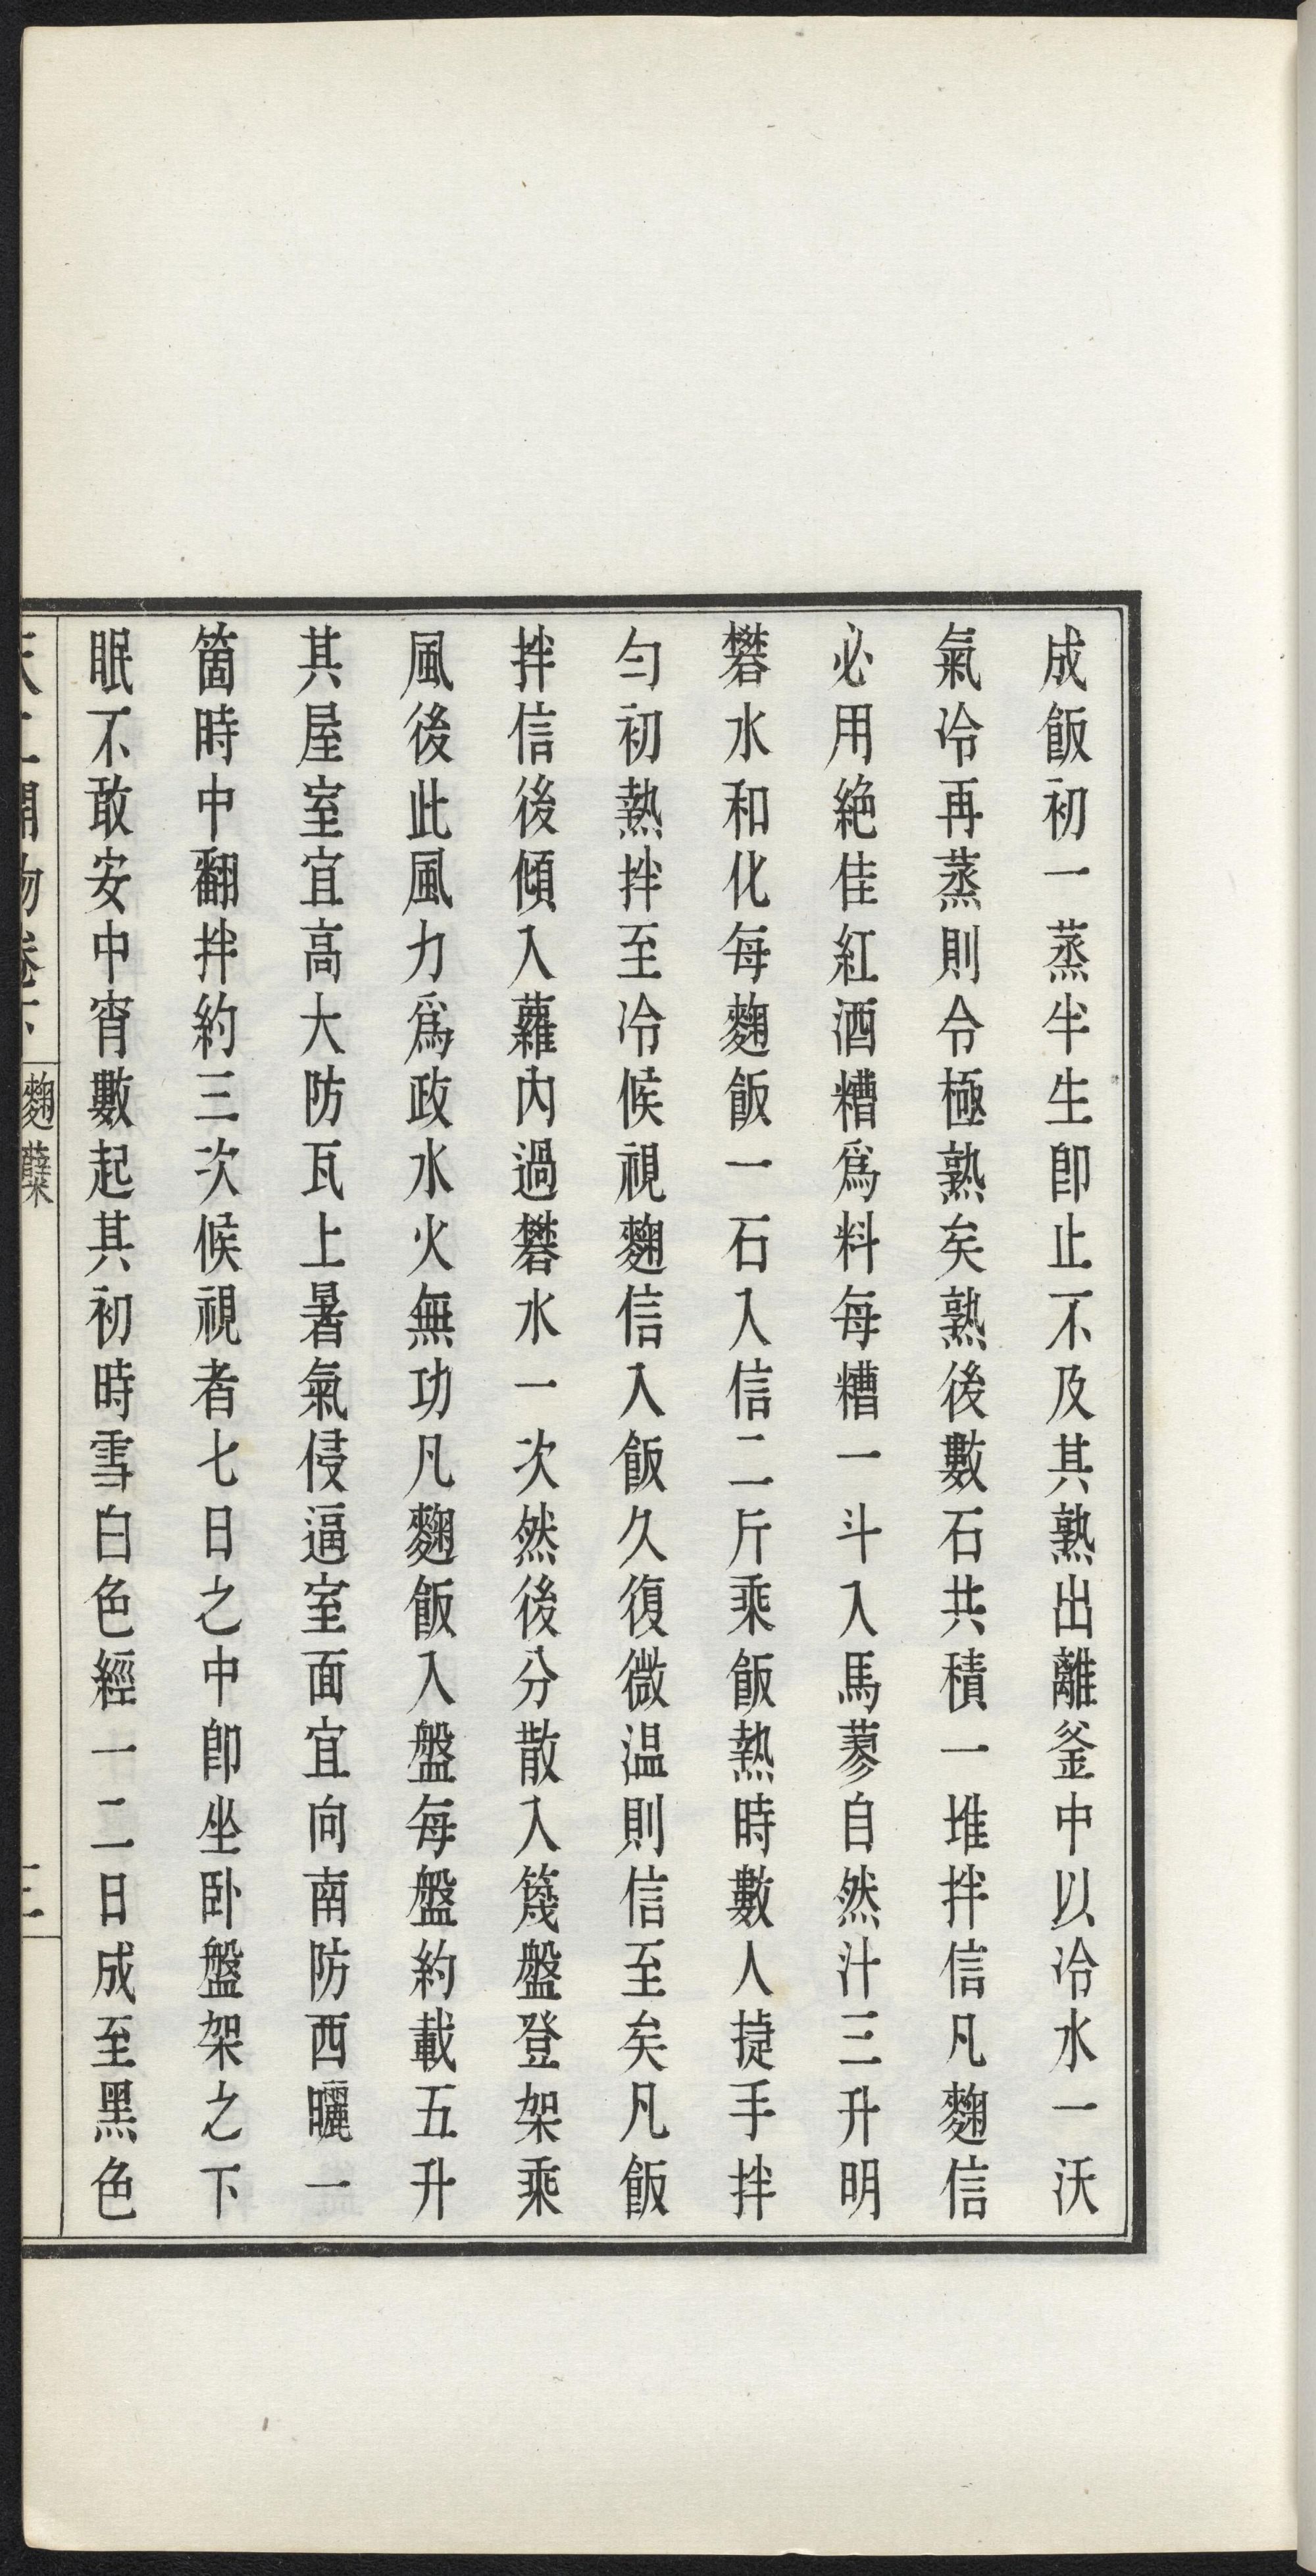 成飯初一蒸半生卽止不及其熟出離釜中以冷水一沃
氣冷再蒸則令極熟矣熟後數石共積一堆拌信凡麴信
必用絶佳紅酒糟爲料每糟一斗入馬蓼自然汁三升明
礬水和化每麴飯一石入信二斤乘飯熱時數人捷手拌
勻初熱拌至冷候視麴信入飯久復微温則信至矣凡飯
拌信後傾入蘿內過礬水一次然後分散入篾盤登架乘
風後此風力爲政水火無功凡麴飯入盤每盤約載五升
其屋室宜高大防瓦上暑氣侵逼室面宜向南防西曬一
箇時中翻拌約三次候視者七日之中卽坐卧盤架之下
眠不敢安中宵數起其初時雪白色經一二日成至黑色
天工開物卷下 麴糵 三